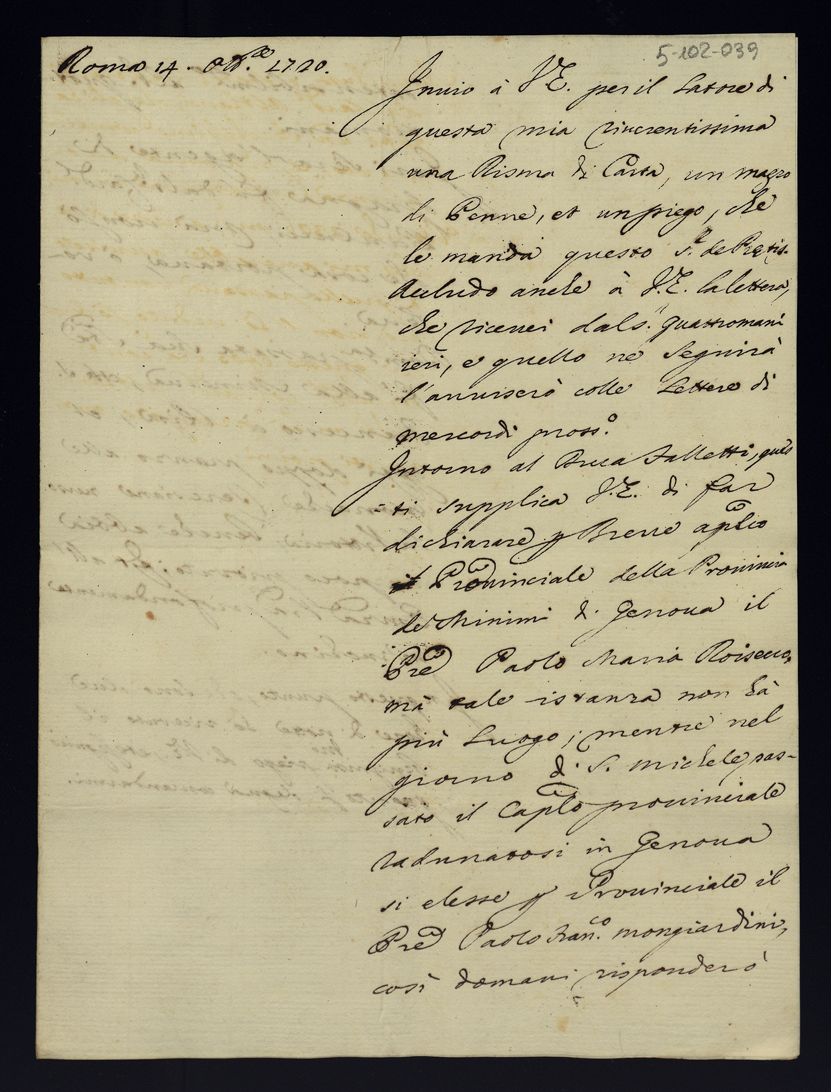 5-102-039
Roma 14. Ott.bre 1720.
Inuio à V.E. per il Latore di
questa mia riuerentissima
una Risma di Carta, un mazzo
di Penne, et un piego, che
le manda questo S.r de Pretis.
Accludo anche à V.E. la lettera,
che riceuei dal S.r Quattromani
ieri, e quello ne seguirà
l'auuiserò colle Lettere di
mercordì pross.o
Intorno al Duca Falletti, ques
=ti supplica V.E. di far
dichiarare p Breue aplico
Prouinciale della Prouincia
de Minimi di Genoua il
Pre Paolo Maria Roisecco,
mà tale istanza non hà
più Luogo; mentre nel
giorno di S. Michele pas-
sato il Caplo prouinciale
radunatosi in Genoua
si elesse p Prouinciale il
Pre Paolo Fran.co mongiardini,
così domani risponderò